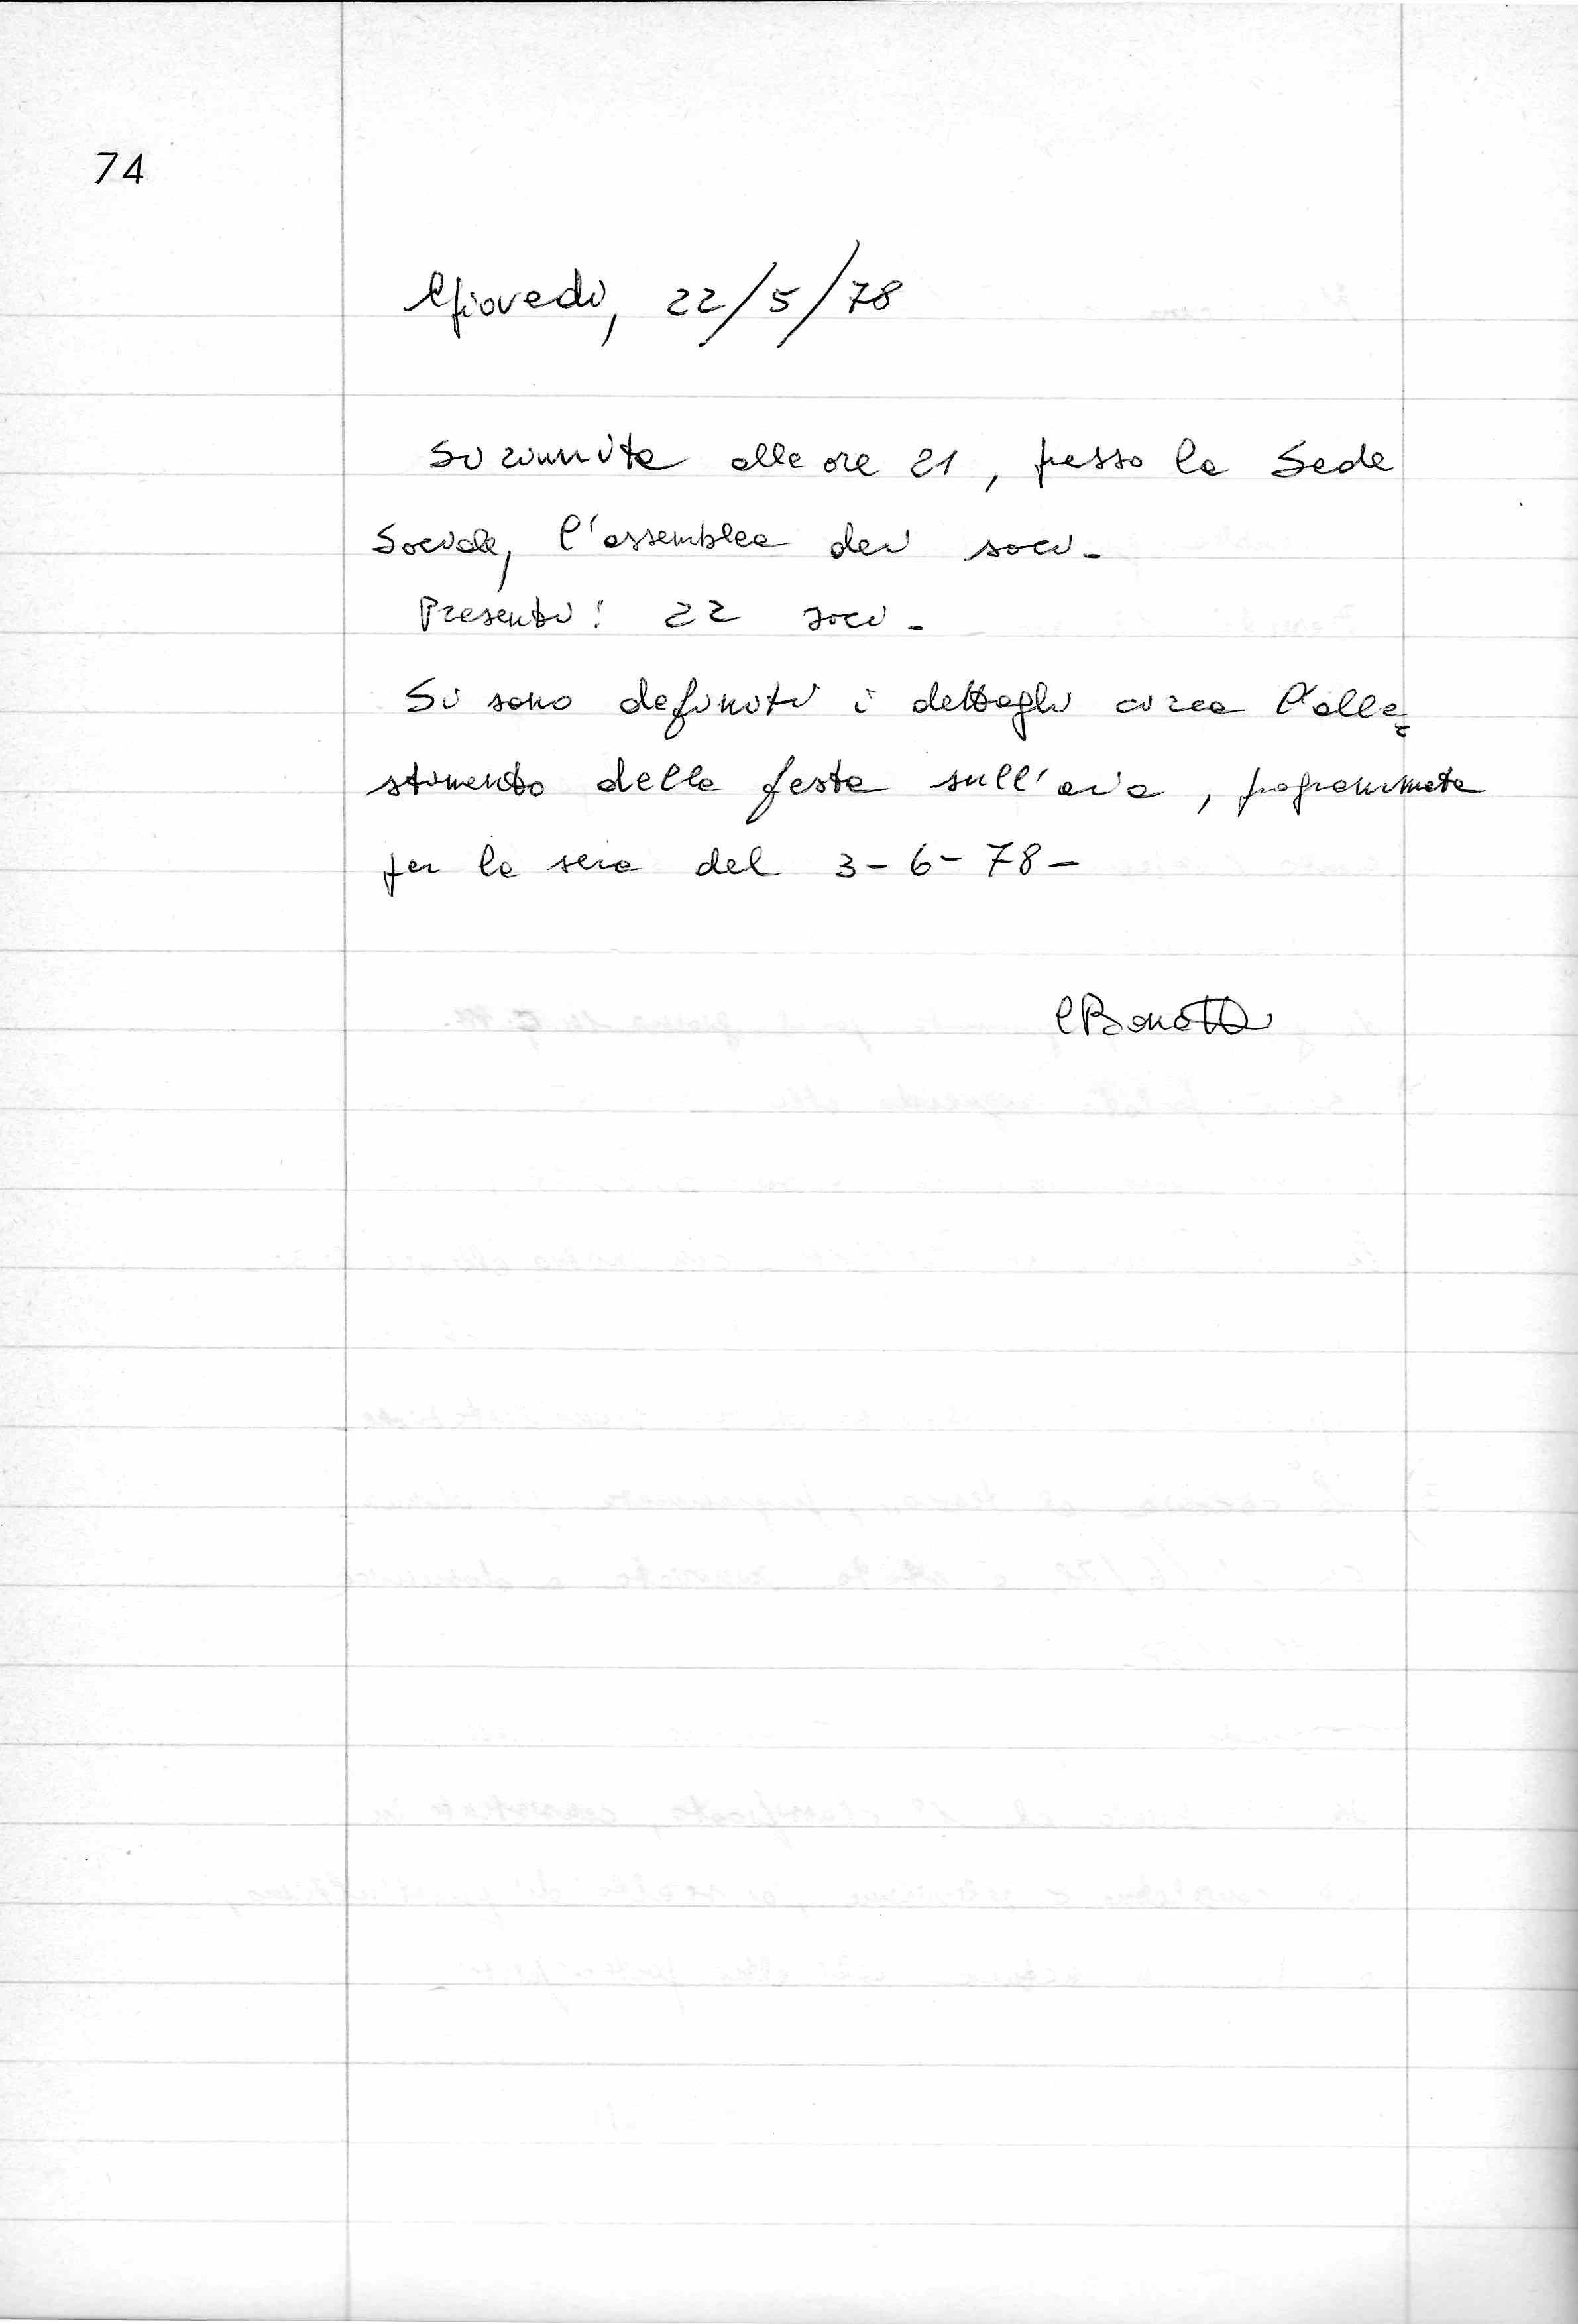 74
Giovedì, 22/5/78
Si riunita alle ore 21, presso la Sede
Sociale, l'assemblea dei soci -
Presenti: 22 soci -
Si sono definiti i dettagli circa l'alle=
stimento della festa sull'aia, programmata
per la sera del 3-6-78-